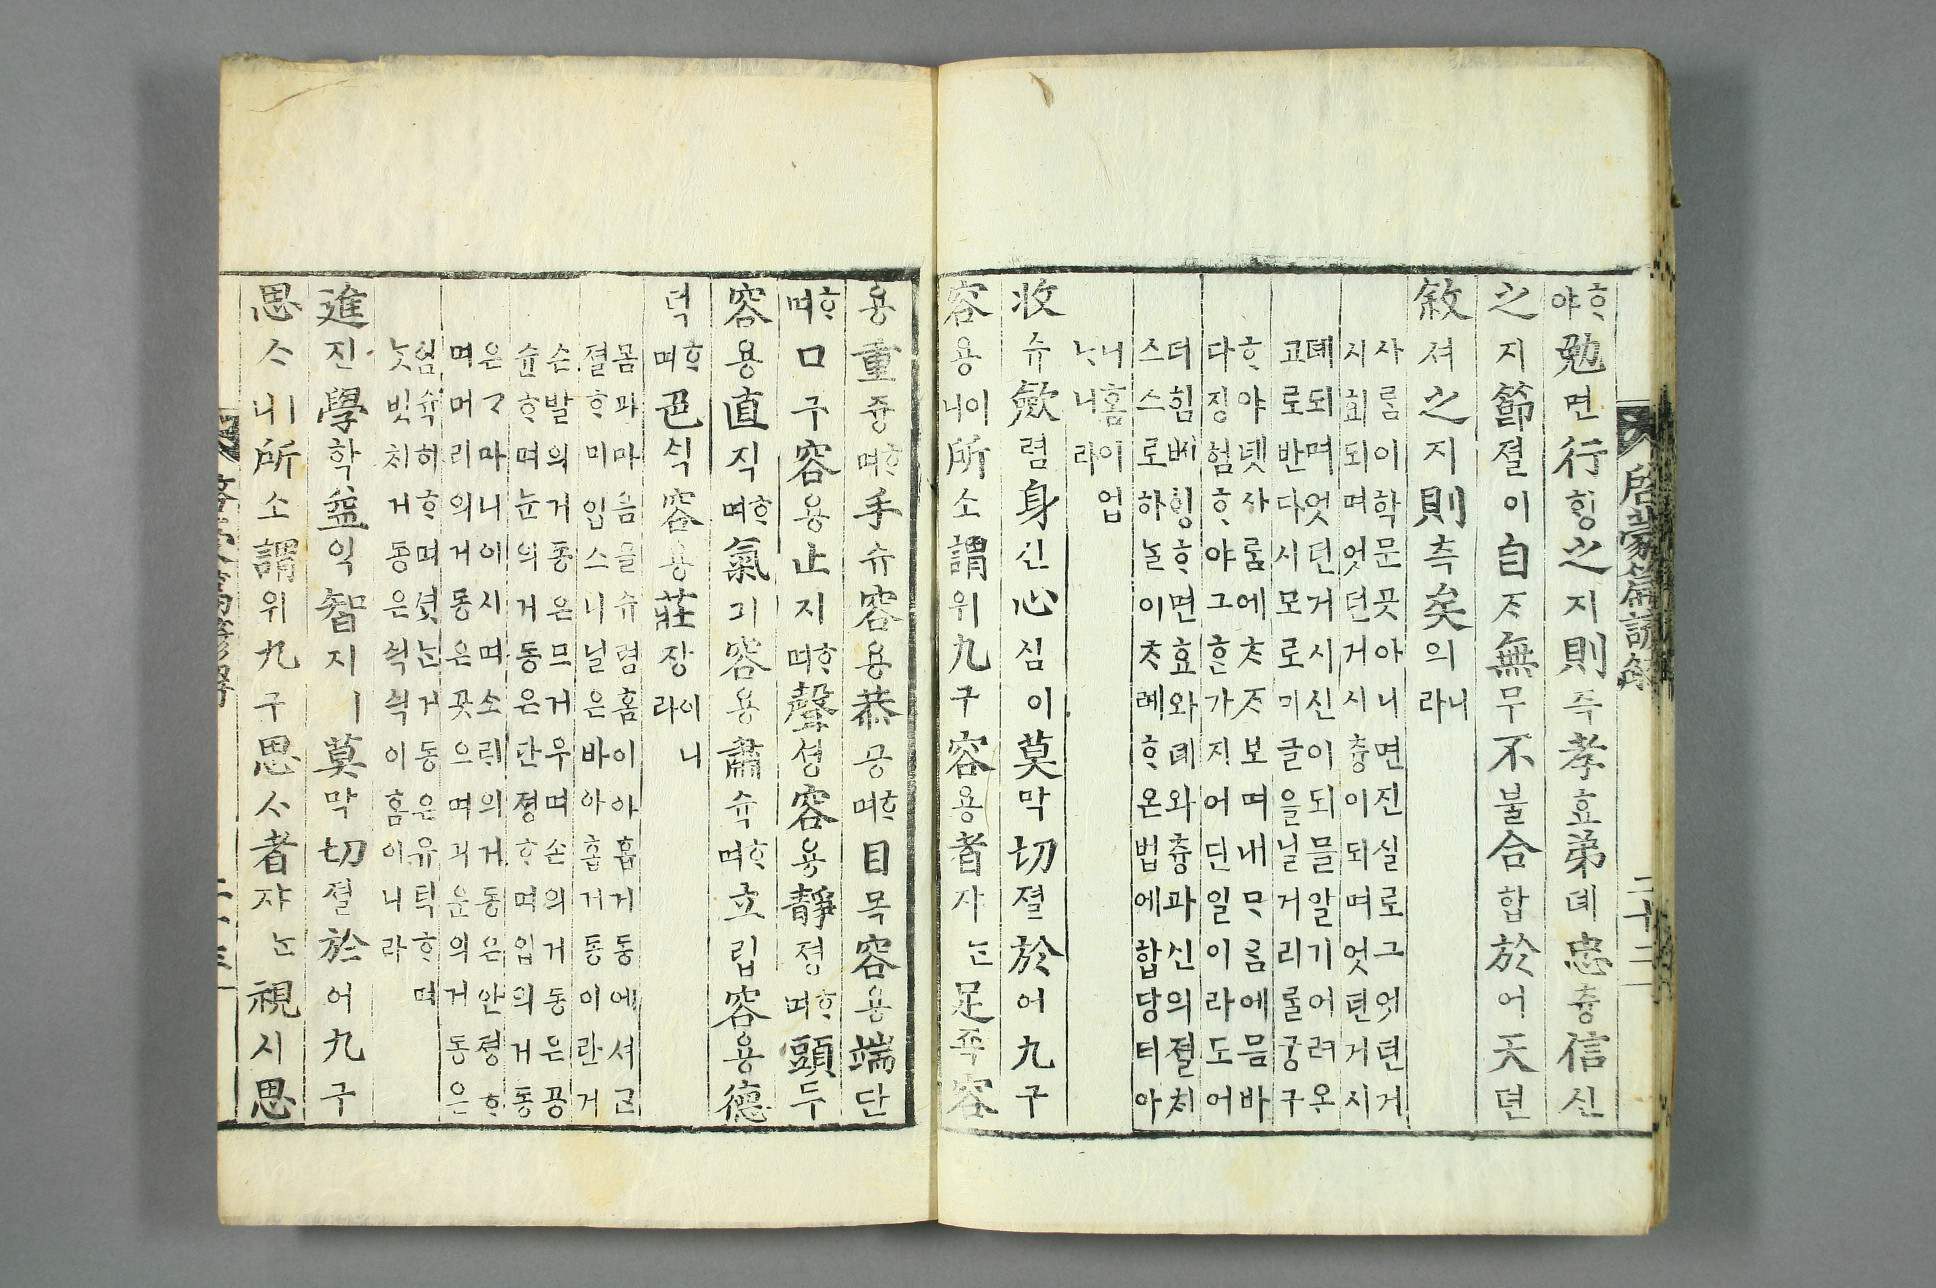 啓蒙篇諺解 二十二
ᄒᆞ야勉면行ᄒᆡᆼ之지則즉孝효弟뎨忠츙信신
之지節졀이自ᄌᆞ無무不불合합於어天텬
敘셔之지則측矣의니라
사ᄅᆞᆷ이학문곳아니면진실로그엇텬거
시회되며엇던거시츙이되며엇텬거시
뎨되며엇던거시신이되믈알기어려온
고로반다시모로미글을닐거리룰궁구
ᄒᆞ야녯사ᄅᆞᆷ에ᄎᆞᄌᆞ보며내ᄆᆞᄅᆞᆷ에믐바
다징험ᄒᆞ야그ᄒᆞᆫ가지어딘일이라도어
더힘ᄡᅥᄒᆡᆼᄒᆞ면효와뎨와츙과신의졀ᄎᆡ
스스로하놀이ᄎᆞ례ᄒᆞ온법에합당티아
니홈이업
ᄂᆞ니라
收슈斂렴身신心심이莫막切졀於어九구
容용이니所소謂위九구容용者쟈ᄂᆞᆫ足죡容
용重즁ᄒᆞ며手슈容용恭공ᄒᆞ며目목容용端단
ᄒᆞ며口구容용止지ᄒᆞ며聲셩容용靜졍ᄒᆞ며頭두
容용直직ᄒᆞ며氣긔容용肅슉ᄒᆞ며立립容용德
덕ᄒᆞ며色식容용莊장이니라
몸과마음을슈렴홈이아홉거동에셔근
졀ᄒᆞ미입스니닐은바아홉거동이란거
슨발의거동은므거우며손의거동은공
슌ᄒᆞ며눈의거동은단졍ᄒᆞ며입의거동
은ᄀᆞ마니이시며소ᄅᆡ의거동은안졍ᄒᆞ
며머리의거동은곳으며긔운의거동은
엄슉히ᄒᆞ며셧ᄂᆞᆫ거동은유턱ᄒᆞ며
ᄂᆞᆺ빗치거동은싁싁이홈이니라
進진學학益익智지ㅣ莫막切졀於어九구
思ᄉᆞㅣ니所소謂위九구思ᄉᆞ者쟈ᄂᆞᆫ視시思